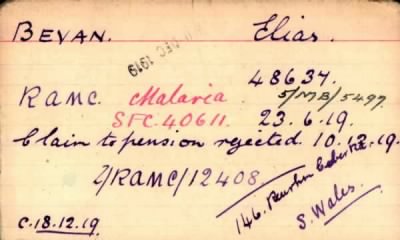 BEVAN. Elias.
DEC 1919
48637.
RAMC. Malaria 5/MB/5497
SFC.40611. 23.6.19.
Claim to pension rejected. 10.12.19.
2/RAMC/12408.
146.
S. Wales.
C.18.12.19